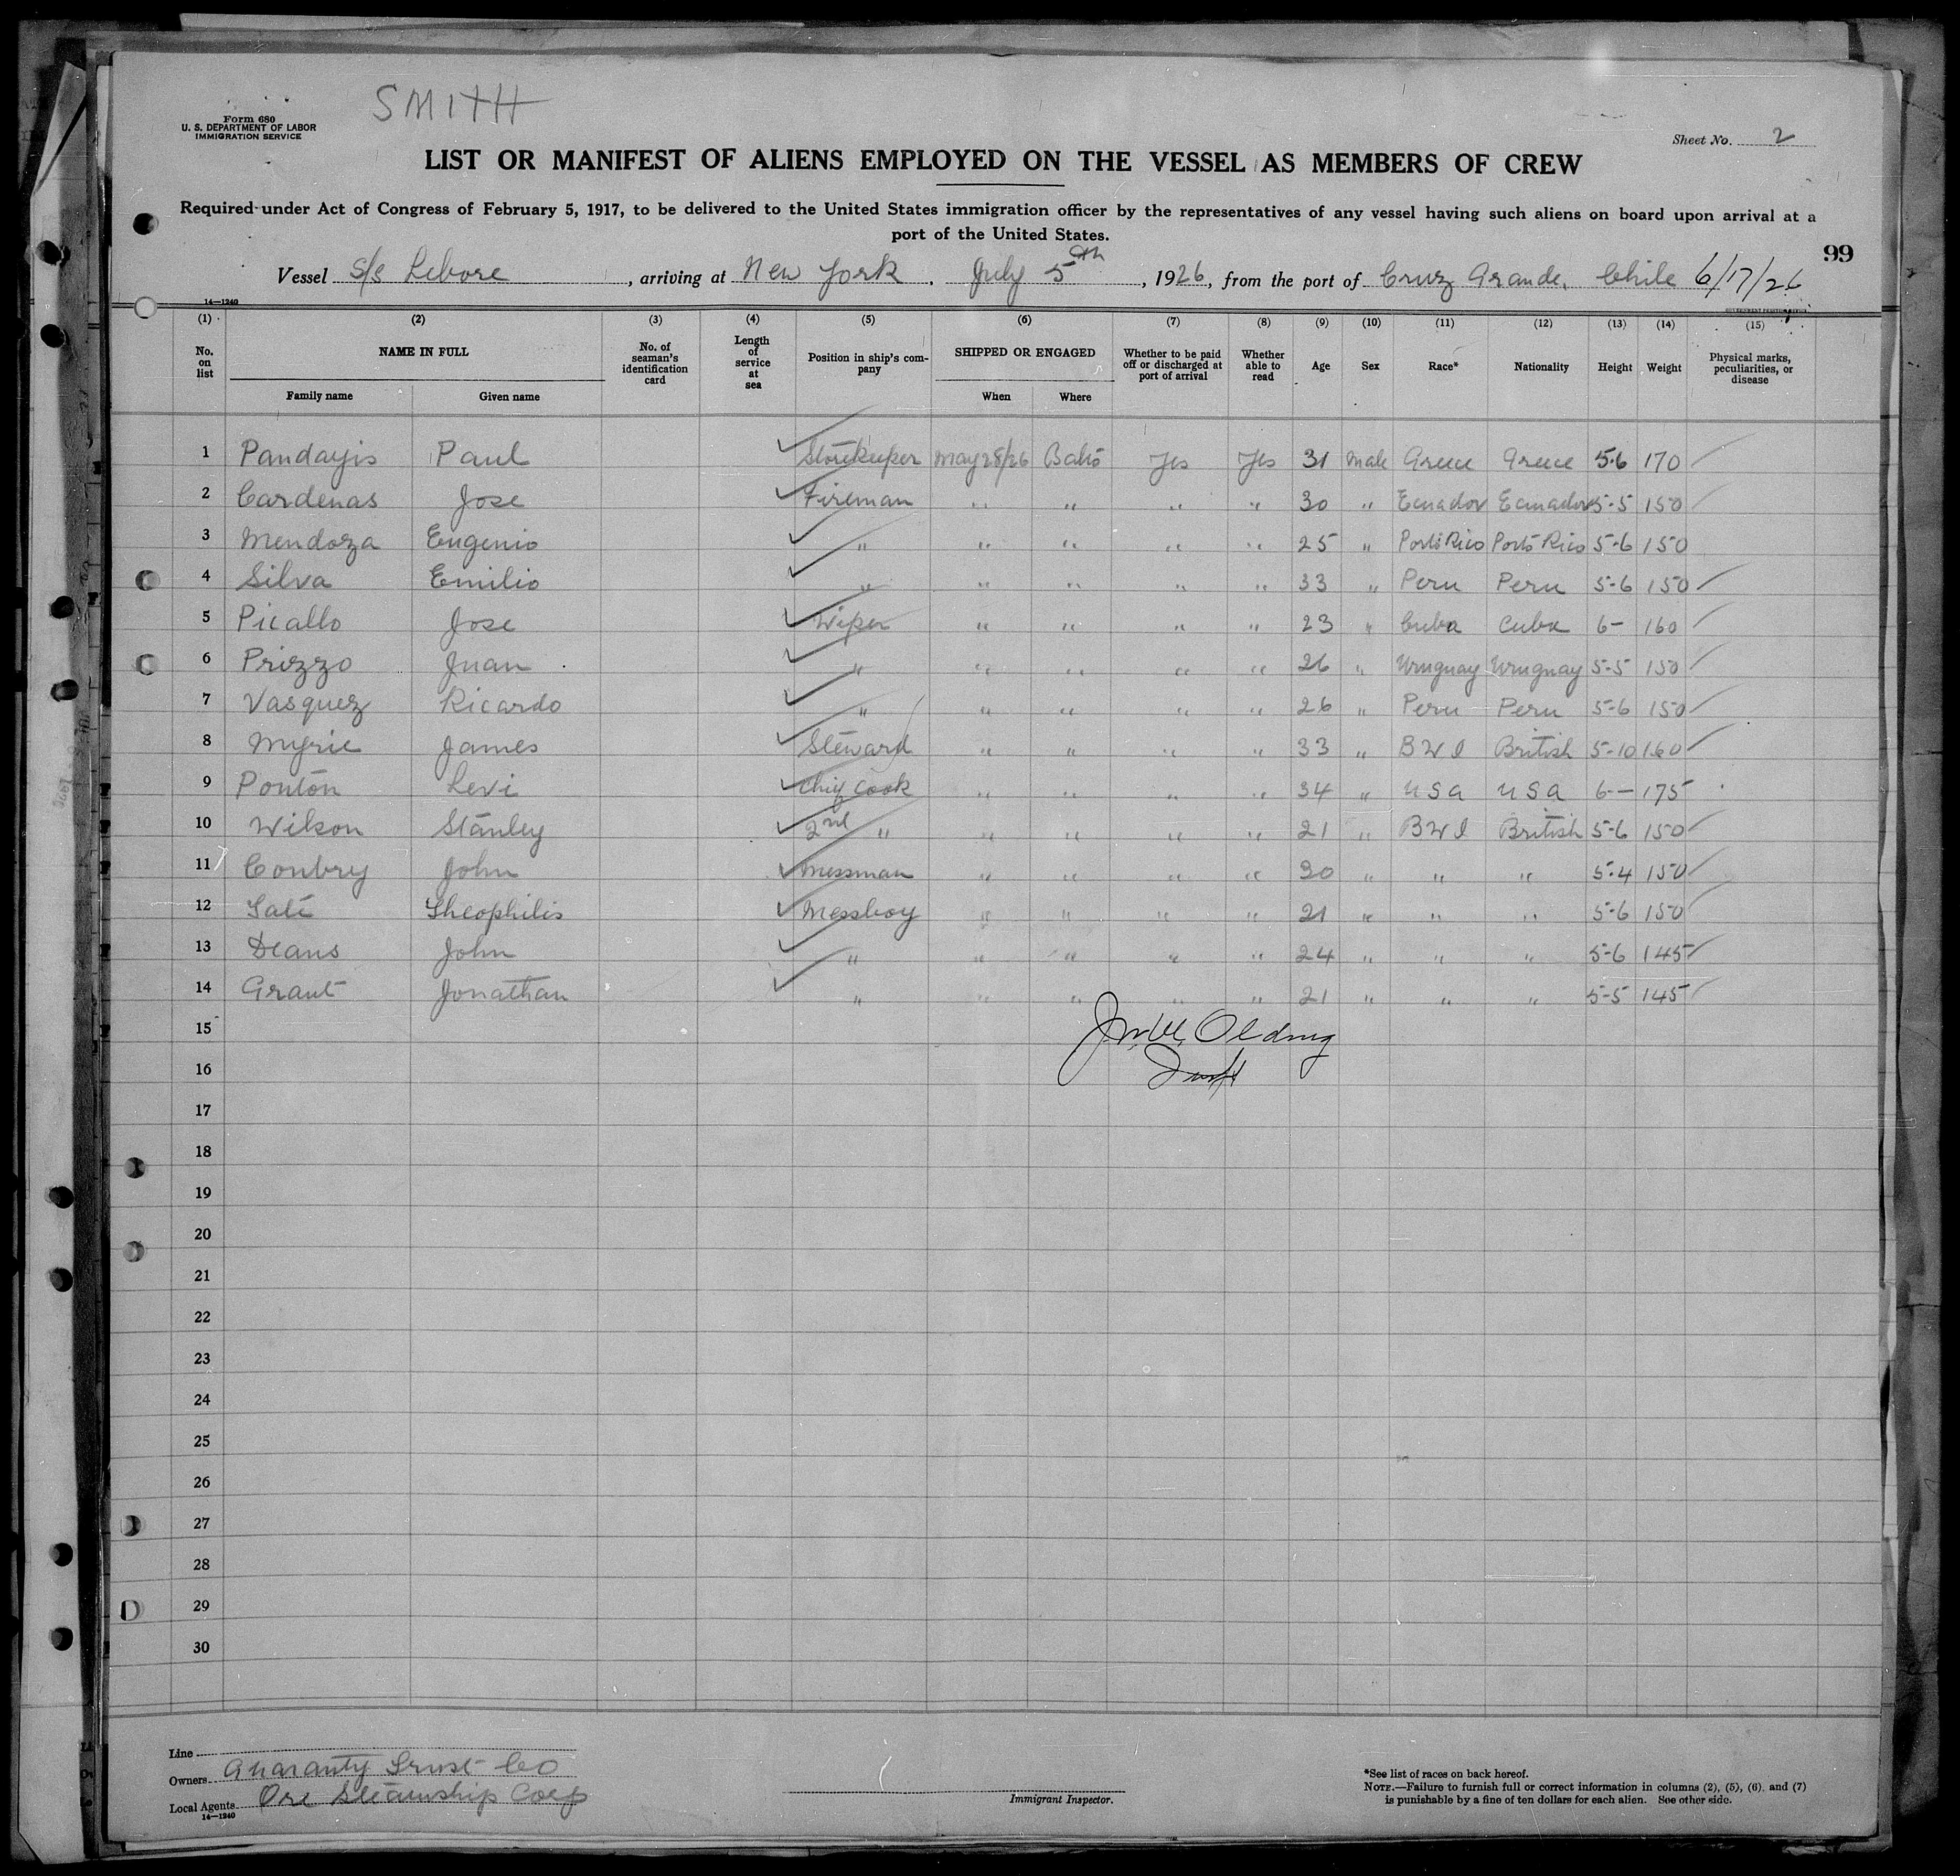 SMITH
Form 680
U. S. DEPARTMENT OF LABOR
IMMIGRATION SERVICE
Sheet No. 2
LIST OR MANIFEST OF ALIENS EMPLOYED ON THE VESSEL AS MEMBERS OF CREW
Required under Act of Congress of February 5, 1917, to be delivered to the United States immigration officer by the representatives of any vessel having such aliens on board upon arrival at a
port of the United States.
99
Vessel S/S Lebore, arriving at New York, July 5th, 1926, from the port of Cruz Grande, Chile 6/17/26
14—1240
(1) (2) (3) (4) (5) (6) (7) (8) (9) (10) (11) (12) (13) (14) (15)
No. on list NAME IN FULL No. of seaman's identification card Length of service at sea Position in ship's company SHIPPED OR ENGAGED Whether to be paid off or discharged at port of arrival Whether able to read Age Sex Race* Nationality Height Weight Physical marks, peculiarities, or disease
Family name Given name When Where
1 Pandayis Paul Storekeeper May 28/26 Balto Yes Yes 31 Male Greece Greece 5-6 170
2 Cardenas Jose Fireman " " " " 30 " Ecuador Ecuador 5-5 150
3 Mendoza Eugenio " " " " " 25 " Porto Rico Porto Rico 5-6 150
4 Silva Emilio " " " " " 33 " Peru Peru 5-6 150
5 Picallo Jose Wiper " " " " 23 " Cuba Cuba 6- 160
6 Prizzo Juan " " " " " 26 " Uruguay Uruguay 5-5 150
7 Vasquez Ricardo " " " " " 26 " Peru Peru 5-6 150
8 Myrie James Steward " " " " 33 " B W I British 5-10 160
9 Ponton Levi Chief Cook " " " " 34 " U S A U S A 6- 175
10 Wilson Stanley 2nd " " " " " 21 " B W I British 5-6 150
11 Conbry John Messman " " " " 30 " " " 5-4 150
12 Theophilis Messboy " " " " 21 " " " 5-6 150
13 Deans John " " " " " 24 " " " 5-6 145
14 Grant Jonathan " " " " " 21 " " " 5-5 145
15
16
17
18
19
20
21
22
23
24
25
26
27
28
29
30
Line
Owners Guaranty Trust Co
Local Agents Ore Steamship Corp
14—1240
Immigrant Inspector.
*See list of races on back hereof.
NOTE.—Failure to furnish full or correct information in columns (2), (5), (6), and (7)
is punishable by a fine of ten dollars for each alien. See other side.